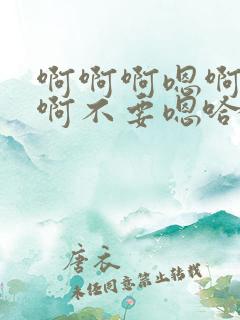 啊啊啊嗯啊
啊不要嗯哈
唐衣
未经同意禁止转载